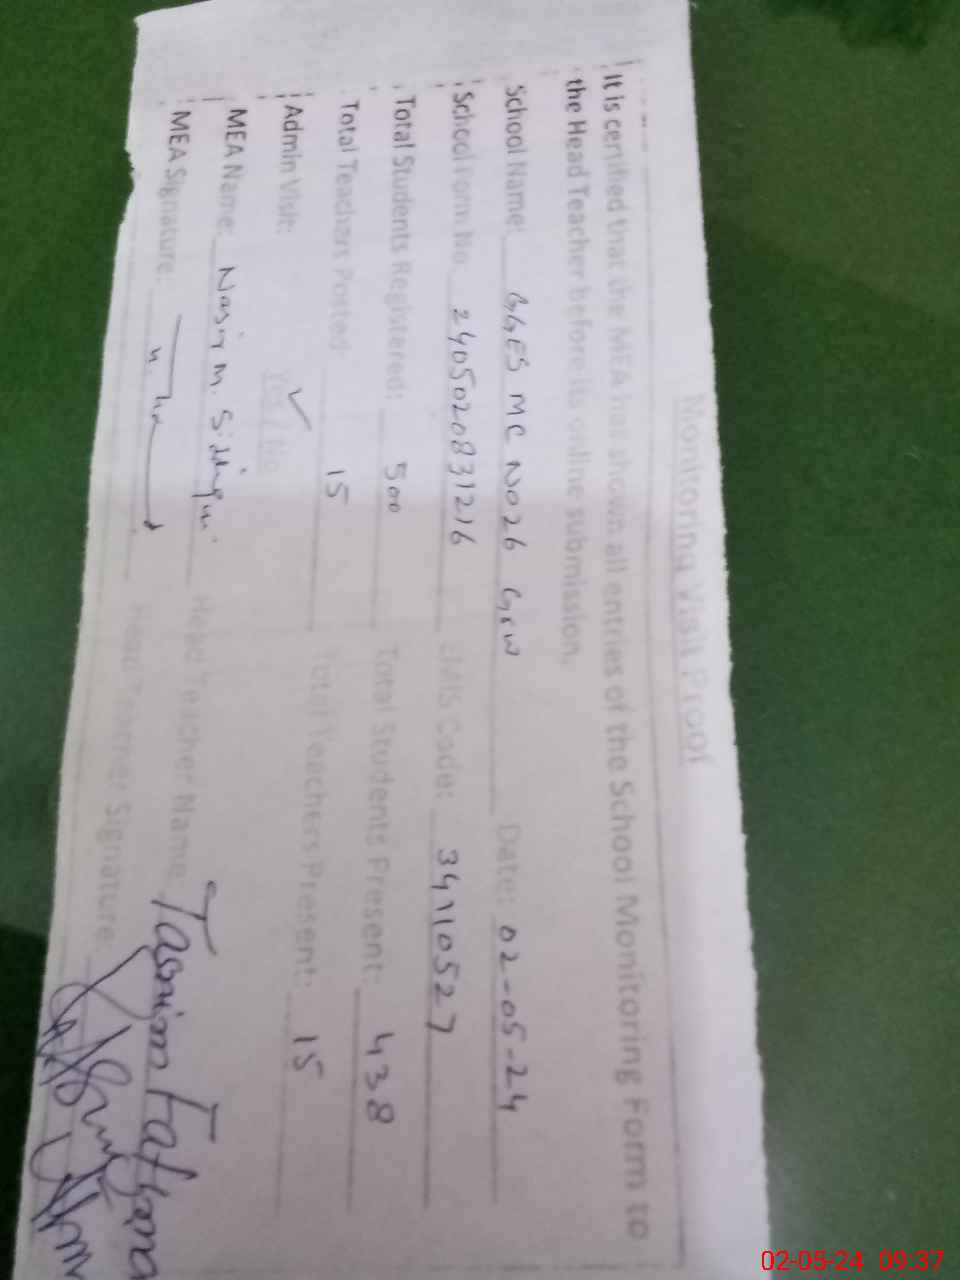 Monitoring Visit Proof
It is certified that the MEA has shown all entries of the School Monitoring Form to
the Head Teacher before its online submission.
School Name: GGES MC NO26 GRW Date: 02-05-24
School Form No. 2405020831216 EMIS Code: 34110527
Total Students Registered: 500 Total Students Present: 438
Total Teachers Posted: 15 Total Teachers Present: 15
Admin Visit: Yes / No
MEA Name: Nasir M. Siddiqui Head Teacher Name: Tasnim Fatima
MEA Signature: Head Teacher Signature:
02-05-24 09:37